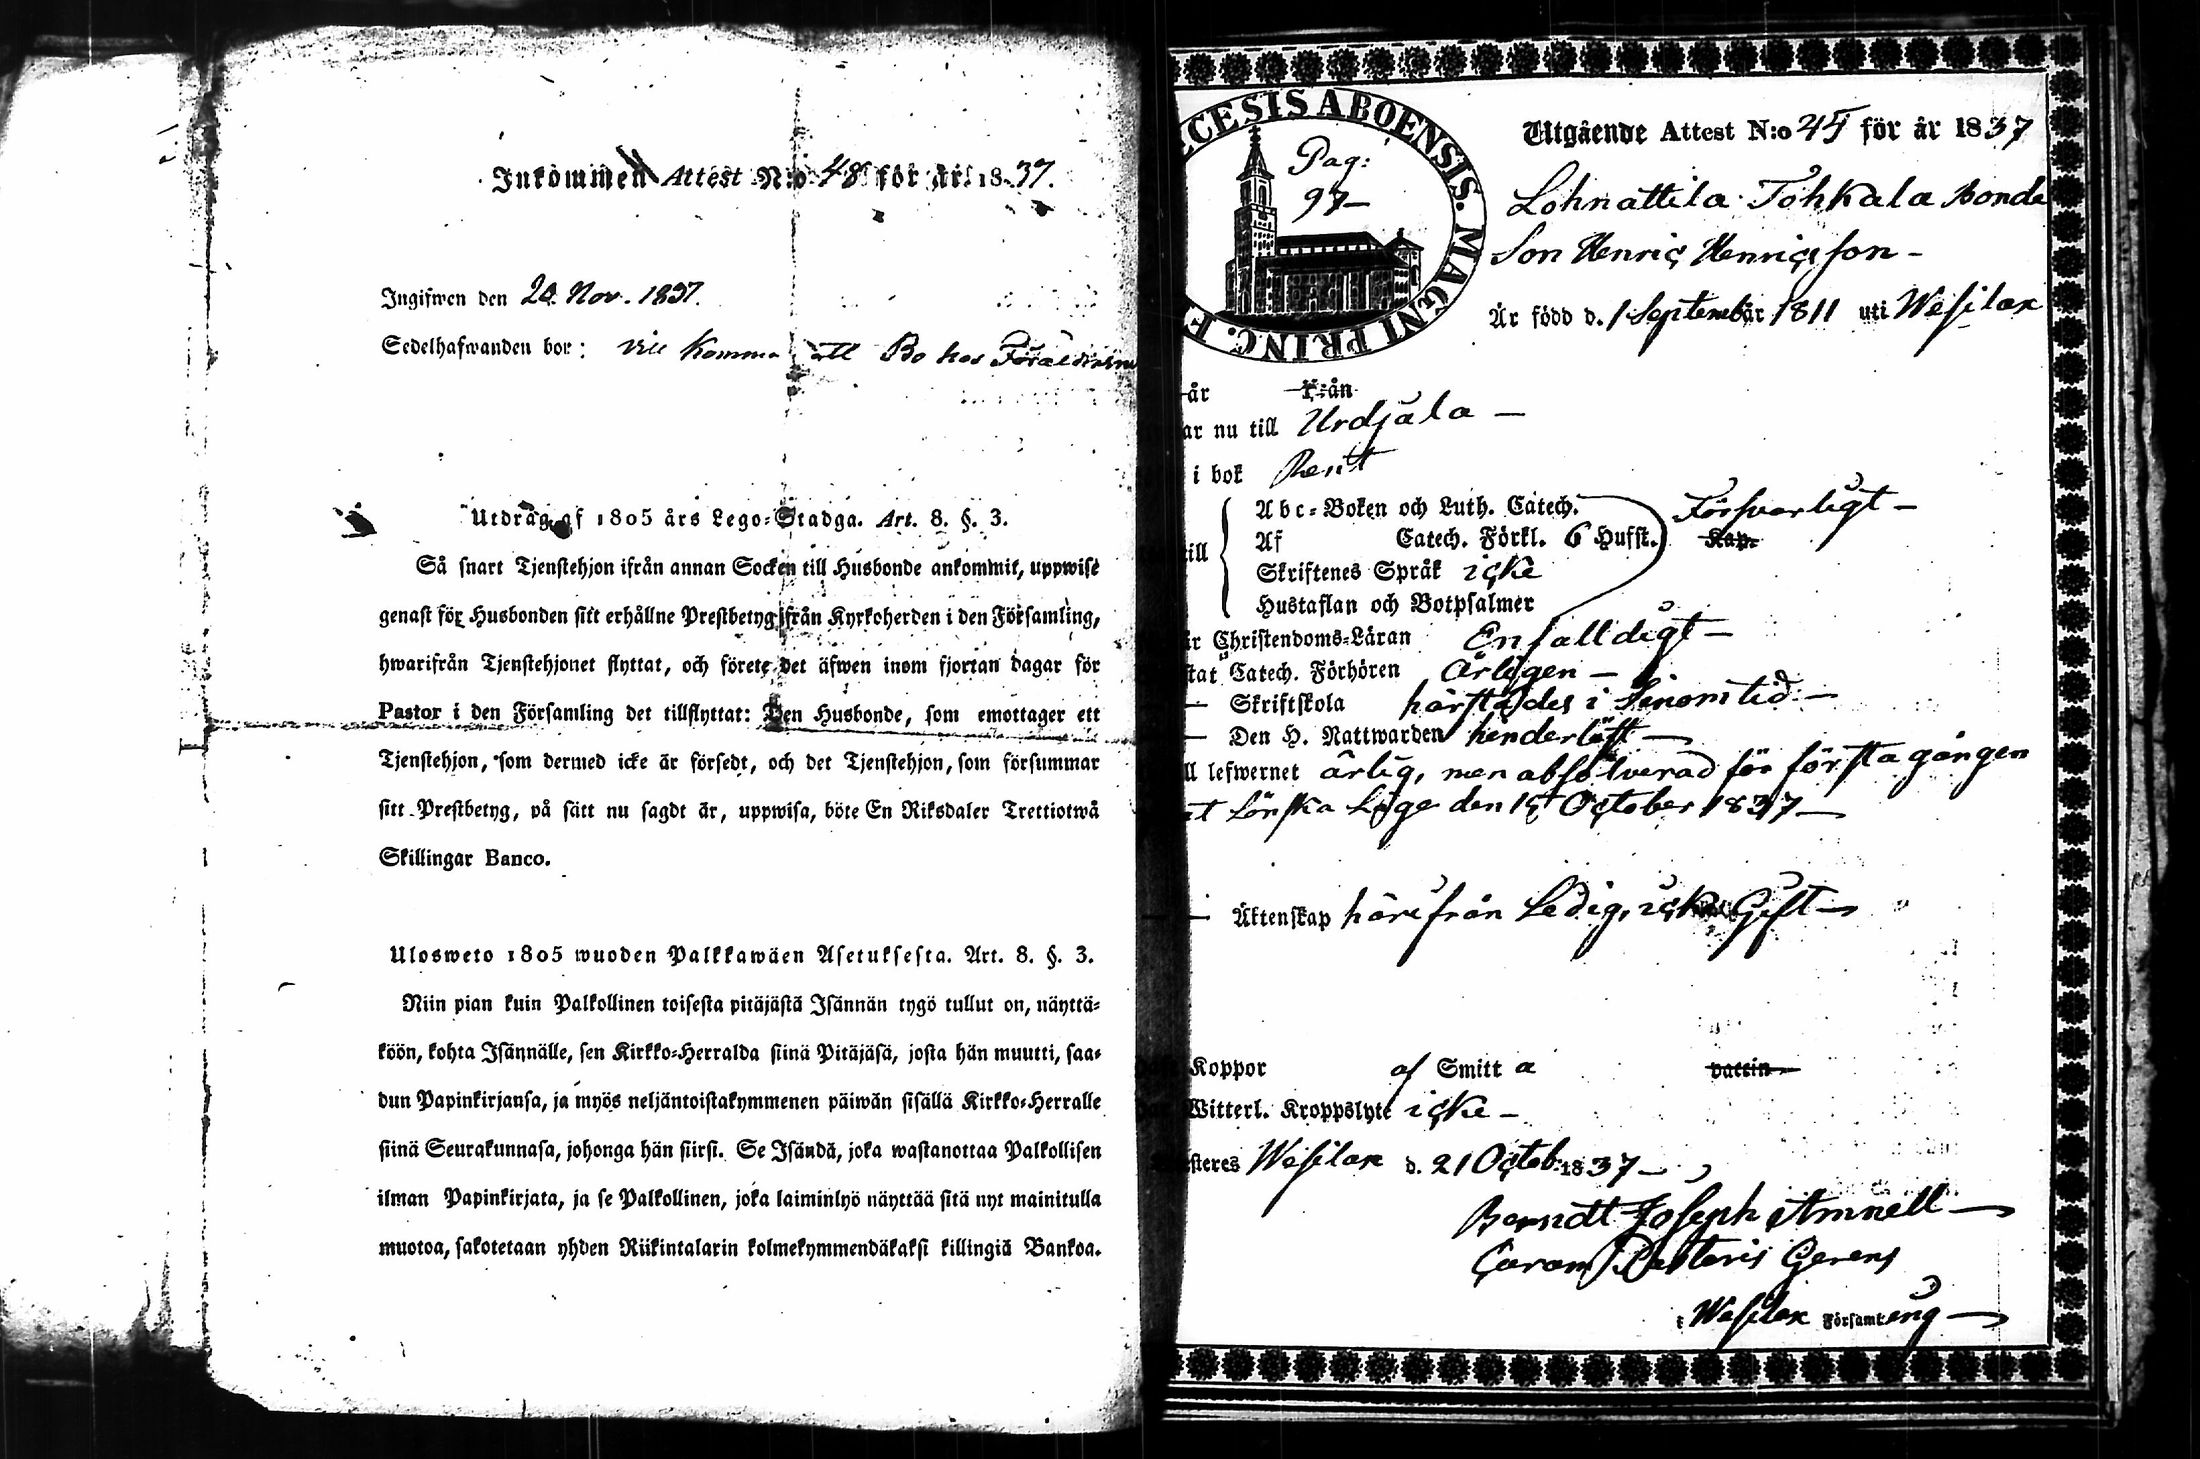 Inkommen Attest N:o 48 för år 1837.
Ingifwen den 20 Nov. 1837.
Sedelhafwanden bor: vill komma att Bo hos Föräldrarna
Utdrag af 1805 års Lego-Stadga. Art. 8. §. 3.
Så snart Tjenstehjon ifrån annan Socken till Husbonde ankommit, uppwise
genast för Husbonden sitt erhållne Prestbetyg ifrån Kyrkoherden i den Församling,
hwarifrån Tjenstehjonet flyttat, och förete det äfwen inom fjortan dagar för
Pastor i den Församling det tillflyttat: Den Husbonde, som emottager ett
Tjenstehjon, som dermed icke är försedt, och det Tjenstehjon, som försummar
sitt Prestbetyg, på sätt nu sagdt är, uppwisa, böte En Riksdaler Trettiotwå
Skillingar Banco.
Ulosweto 1805 wuoden Palkkawäen Asetuksesta. Art. 8. §. 3.
Niin pian kuin Palkollinen toisesta pitäjästä Isännän tygö tullut on, näyttä-
köön, kohta Isännälle, sen Kirkko-Herralda siinä Pitäjäsä, josta hän muutti, saa-
dun Papinkirjansa, ja myös neljäntoistakymmenen päiwän sisällä Kirkko-Herralle
siinä Seurakunnasa, johonga hän siirsi. Se Isändä, joka wastanottaa Palkollisen
ilman Papinkirjata, ja se Palkollinen, joka laiminlyö näyttää sitä nyt mainitulla
muotoa, sakotetaan yhden Riikintalarin kolmekymmendäkaksi killingiä Bankoa.
ECESIS ABOENSIS. MAGNI PRINC. F
Pag:
97
Utgående Attest N:o 45 för år 1837
Lohnattila Tohkala Bonde
Son Henriç Henriçsson
Är född d. 1 September 1811 uti Wesilax
är från
ar nu till Urdjala
i bok Rent
till
Abc-Boken och Luth. Catech. Försvarligt
Af Catech. Förkl. 6 Hufst. Kap.
Skriftenes Språk içke
Hustaflan och Botpsalmer
är Christendoms-Läran Enfalldigt
stat Catech. Förhören Årligen
Skriftskola härstädes i sinom tid
Den H. Nattwarden
ll lefwernet ärlig, men absolverad för första gången
Lönska Läge den 15 October 1837
Äktenskap härifrån Ledig, içke Gift
Koppor af Smitta vaccin
Witterl. Kroppslyte içke
steres Wesilax d. 21 Octob: 1837
Berndt Joseph Amnell
Curam Pastoris Gerens
i Wesilax Församling